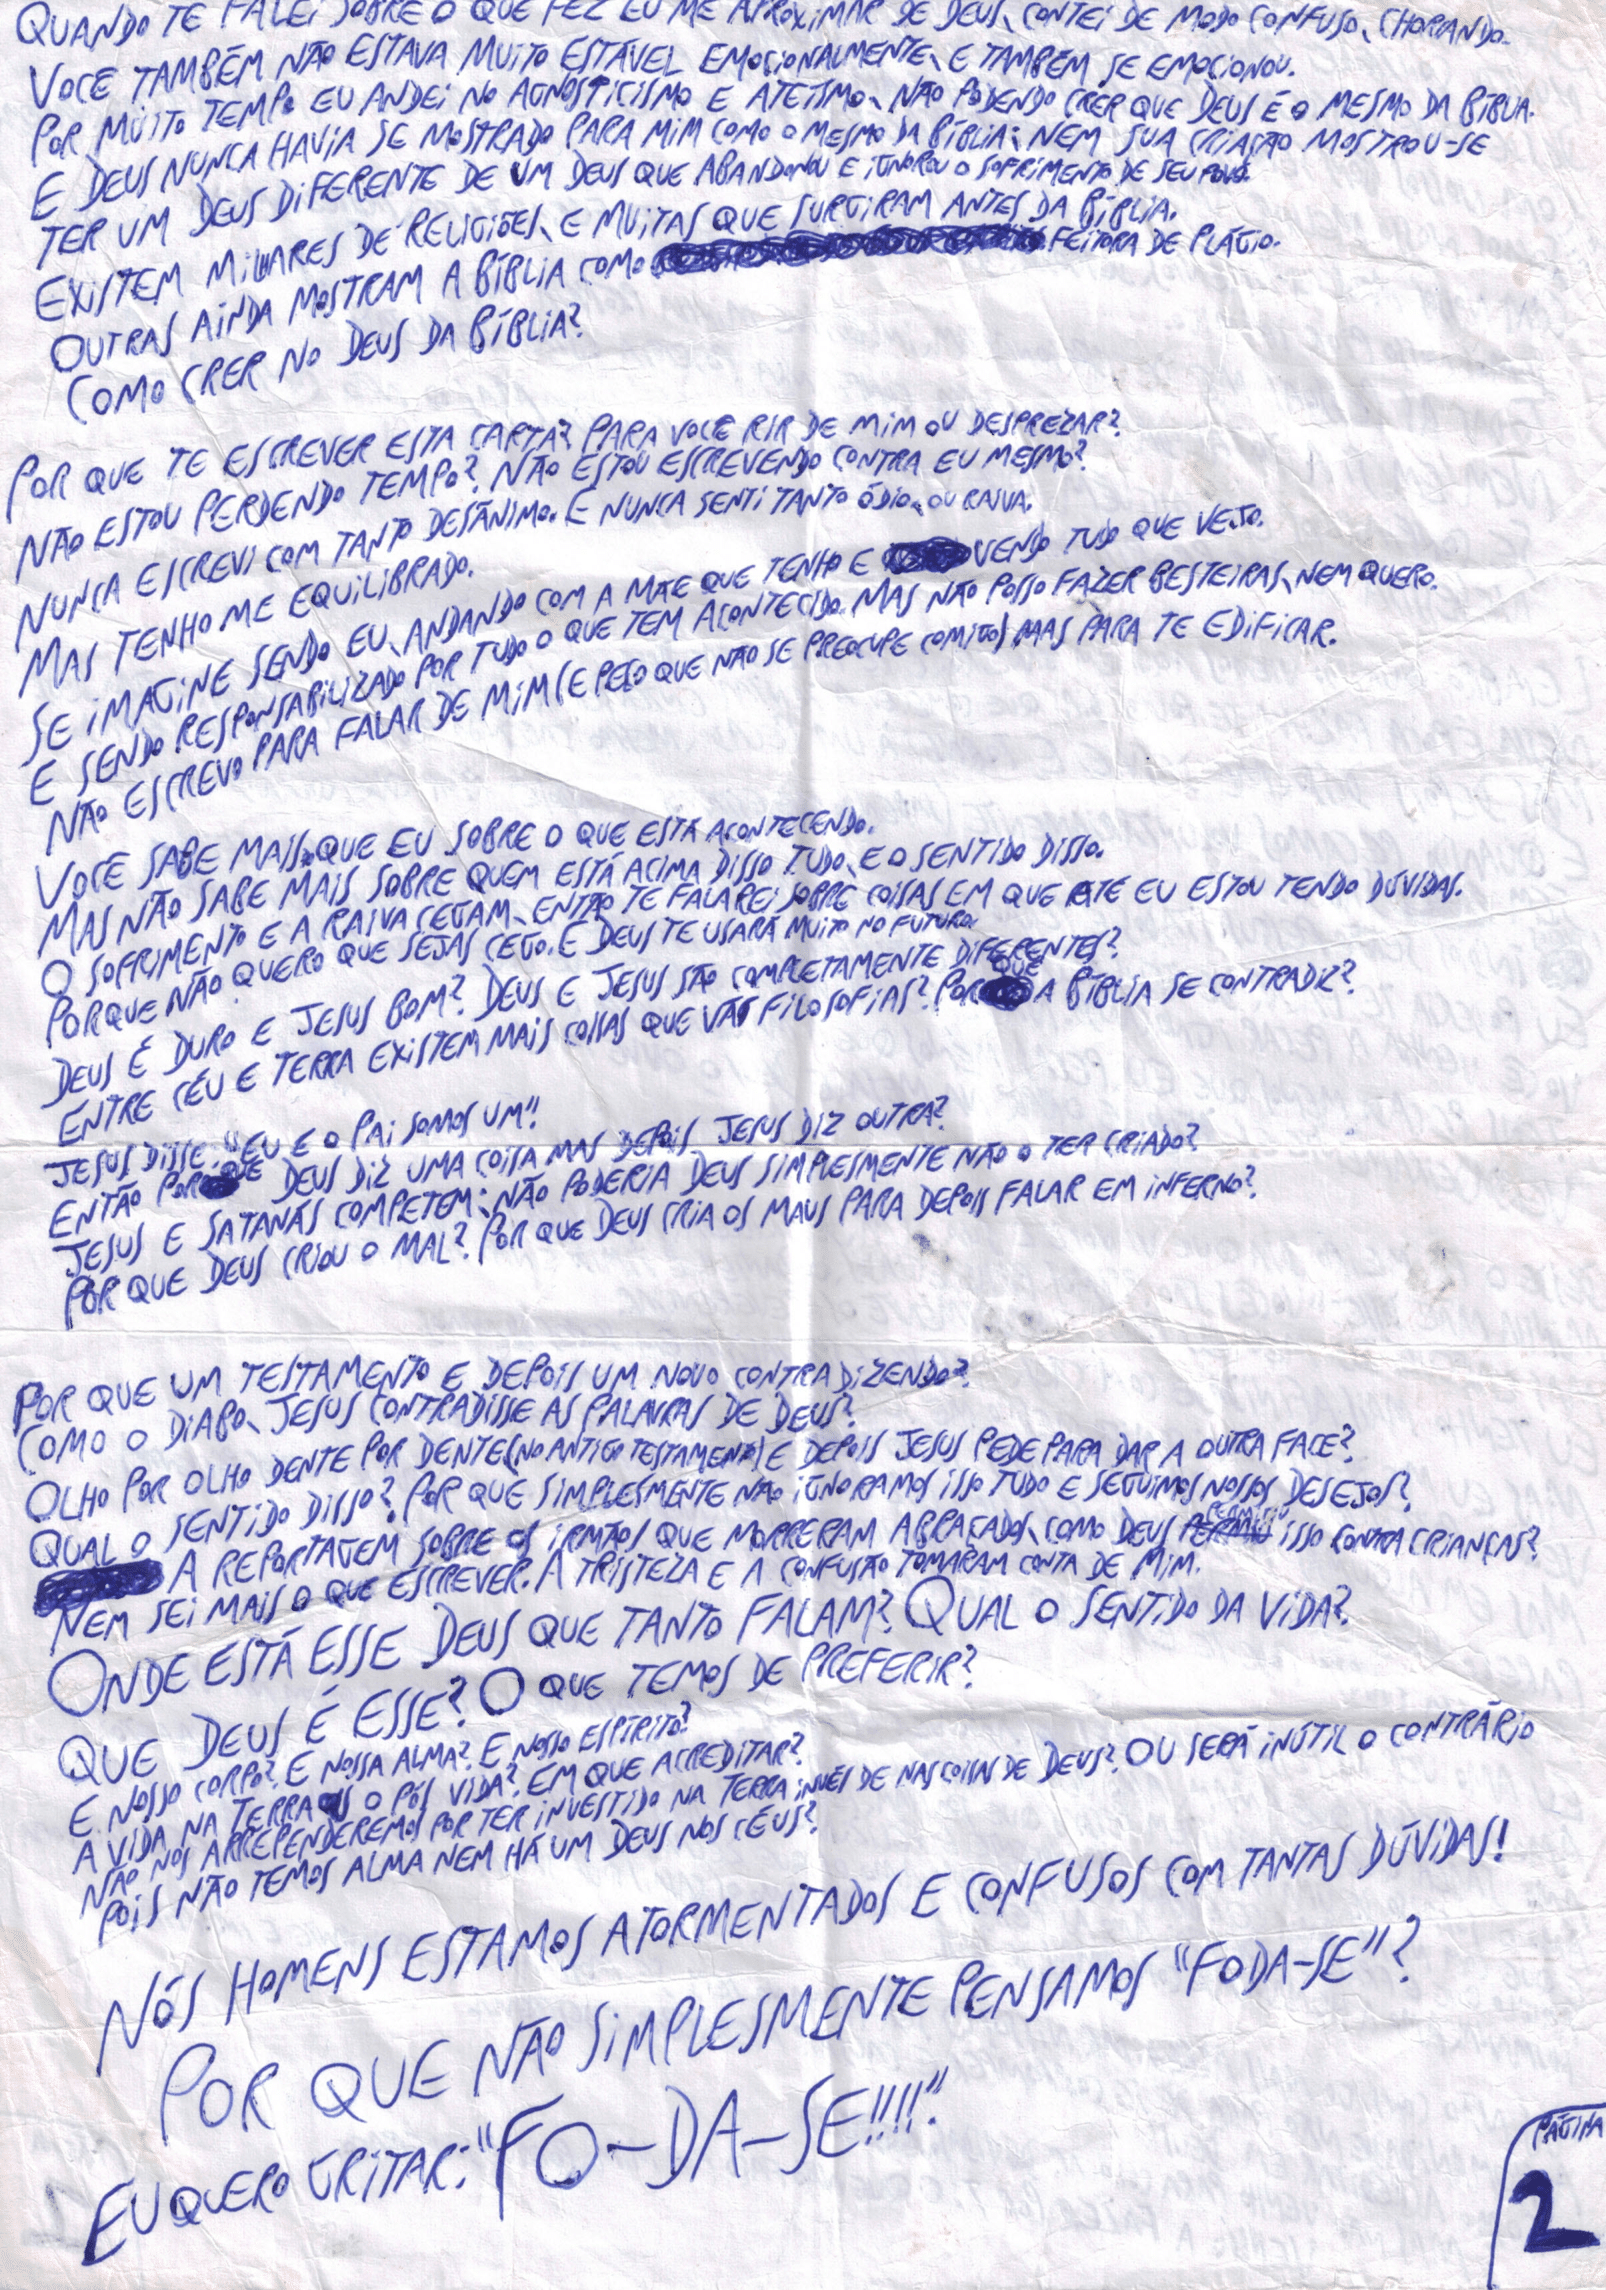 QUANDO TE FALEI SOBRE O QUE FEZ EU ME APROXIMAR DE DEUS, CONTEI DE MODO CONFUSO, CHORANDO.
VOCÊ TAMBÉM NÃO ESTAVA MUITO ESTÁVEL EMOCIONALMENTE, E TAMBÉM SE EMOCIONOU.
POR MUITO TEMPO EU ANDEI NO AGNOSTICISMO E ATEÍSMO, NÃO PODENDO CRER QUE DEUS É O MESMO DA BÍBLIA.
E DEUS NUNCA HAVIA SE MOSTRADO PARA MIM COMO O MESMO DA BÍBLIA; NEM SUA CRIAÇÃO MOSTROU-SE
TER UM DEUS DIFERENTE DE UM DEUS QUE ABANDONOU E IGNOROU O SOFRIMENTO DE SEU POVO.
EXISTEM MILHARES DE RELIGIÕES, E MUITAS QUE SURGIRAM ANTES DA BÍBLIA.
OUTRAS AINDA MOSTRAM A BÍBLIA COMO FEITORA DE PLÁGIO.
COMO CRER NO DEUS DA BÍBLIA?
POR QUE TE ESCREVER ESTA CARTA? PARA VOCÊ RIR DE MIM OU DESPREZAR?
NÃO ESTOU PERDENDO TEMPO? NÃO ESTOU ESCREVENDO CONTRA EU MESMO?
NUNCA ESCREVI COM TANTO DESÂNIMO. E NUNCA SENTI TANTO ÓDIO, OU RAIVA.
MAS TENHO ME EQUILIBRADO.
SE IMAGINE SENDO EU, ANDANDO COM A MÃE QUE TENHO E VENDO TUDO QUE VEJO.
E SENDO RESPONSABILIZADO POR TUDO O QUE TEM ACONTECIDO. MAS NÃO POSSO FAZER BESTEIRAS, NEM QUERO.
NÃO ESCREVO PARA FALAR DE MIM (E PEÇO QUE NÃO SE PREOCUPE COMIGO) MAS PARA TE EDIFICAR.
VOCÊ SABE MAIS QUE EU SOBRE O QUE ESTÁ ACONTECENDO.
MAS NÃO SABE MAIS SOBRE QUEM ESTÁ ACIMA DISSO TUDO, E O SENTIDO DISSO.
O SOFRIMENTO E A RAIVA CEGAM, ENTÃO TE FALAREI SOBRE COISAS EM QUE ATÉ EU ESTOU TENDO DÚVIDAS.
PORQUE NÃO QUERO QUE SEJAS CEGO. E DEUS TE USARÁ MUITO NO FUTURO.
DEUS É DURO E JESUS BOM? DEUS E JESUS SÃO COMPLETAMENTE DIFERENTES?
ENTRE CÉU E TERRA EXISTEM MAIS COISAS QUE VÃS FILOSOFIAS? POR QUE A BÍBLIA SE CONTRADIZ?
JESUS DISSE: "EU E O PAI SOMOS UM"!
ENTÃO POR QUE DEUS DIZ UMA COISA MAS DEPOIS JESUS DIZ OUTRA?
JESUS E SATANÁS COMPETEM; NÃO PODERIA DEUS SIMPLESMENTE NÃO O TER CRIADO?
POR QUE DEUS CRIOU O MAL? POR QUE DEUS CRIA OS MAUS PARA DEPOIS FALAR EM INFERNO?
POR QUE UM TESTAMENTO E DEPOIS UM NOVO CONTRADIZENDO?
COMO O DIABO, JESUS CONTRADISSE AS PALAVRAS DE DEUS?
OLHO POR OLHO DENTE POR DENTE (NO ANTIGO TESTAMENTO) E DEPOIS JESUS PEDE PARA DAR A OUTRA FACE?
QUAL O SENTIDO DISSO? POR QUE SIMPLESMENTE NÃO IGNORAMOS ISSO TUDO E SEGUIMOS NOSSOS DESEJOS?
A REPORTAGEM SOBRE OS IRMÃOS QUE MORRERAM ABRAÇADOS, COMO DEUS PERMITIU ISSO CONTRA CRIANÇAS?
NEM SEI MAIS O QUE ESCREVER. A TRISTEZA E A CONFUSÃO TOMARAM CONTA DE MIM.
ONDE ESTÁ ESSE DEUS QUE TANTO FALAM? QUAL O SENTIDO DA VIDA?
QUE DEUS É ESSE? O QUE TEMOS DE PREFERIR?
E NOSSO CORPO? E NOSSA ALMA? E NOSSO ESPÍRITO?
A VIDA NA TERRA O PÓS VIDA? EM QUE ACREDITAR?
NÃO NOS ARREPENDEREMOS POR TER INVESTIDO NA TERRA INVÉS DE NAS COISAS DE DEUS? OU SERÁ INÚTIL O CONTRÁRIO
POIS NÃO TEMOS ALMA NEM HÁ UM DEUS NOS CÉUS?
NÓS HOMENS ESTAMOS ATORMENTADOS E CONFUSOS COM TANTAS DÚVIDAS!
POR QUE NÃO SIMPLESMENTE PENSAMOS "FODA-SE"?
EU QUERO GRITAR: "FO-DA-SE!!!!".
PÁGINA
2